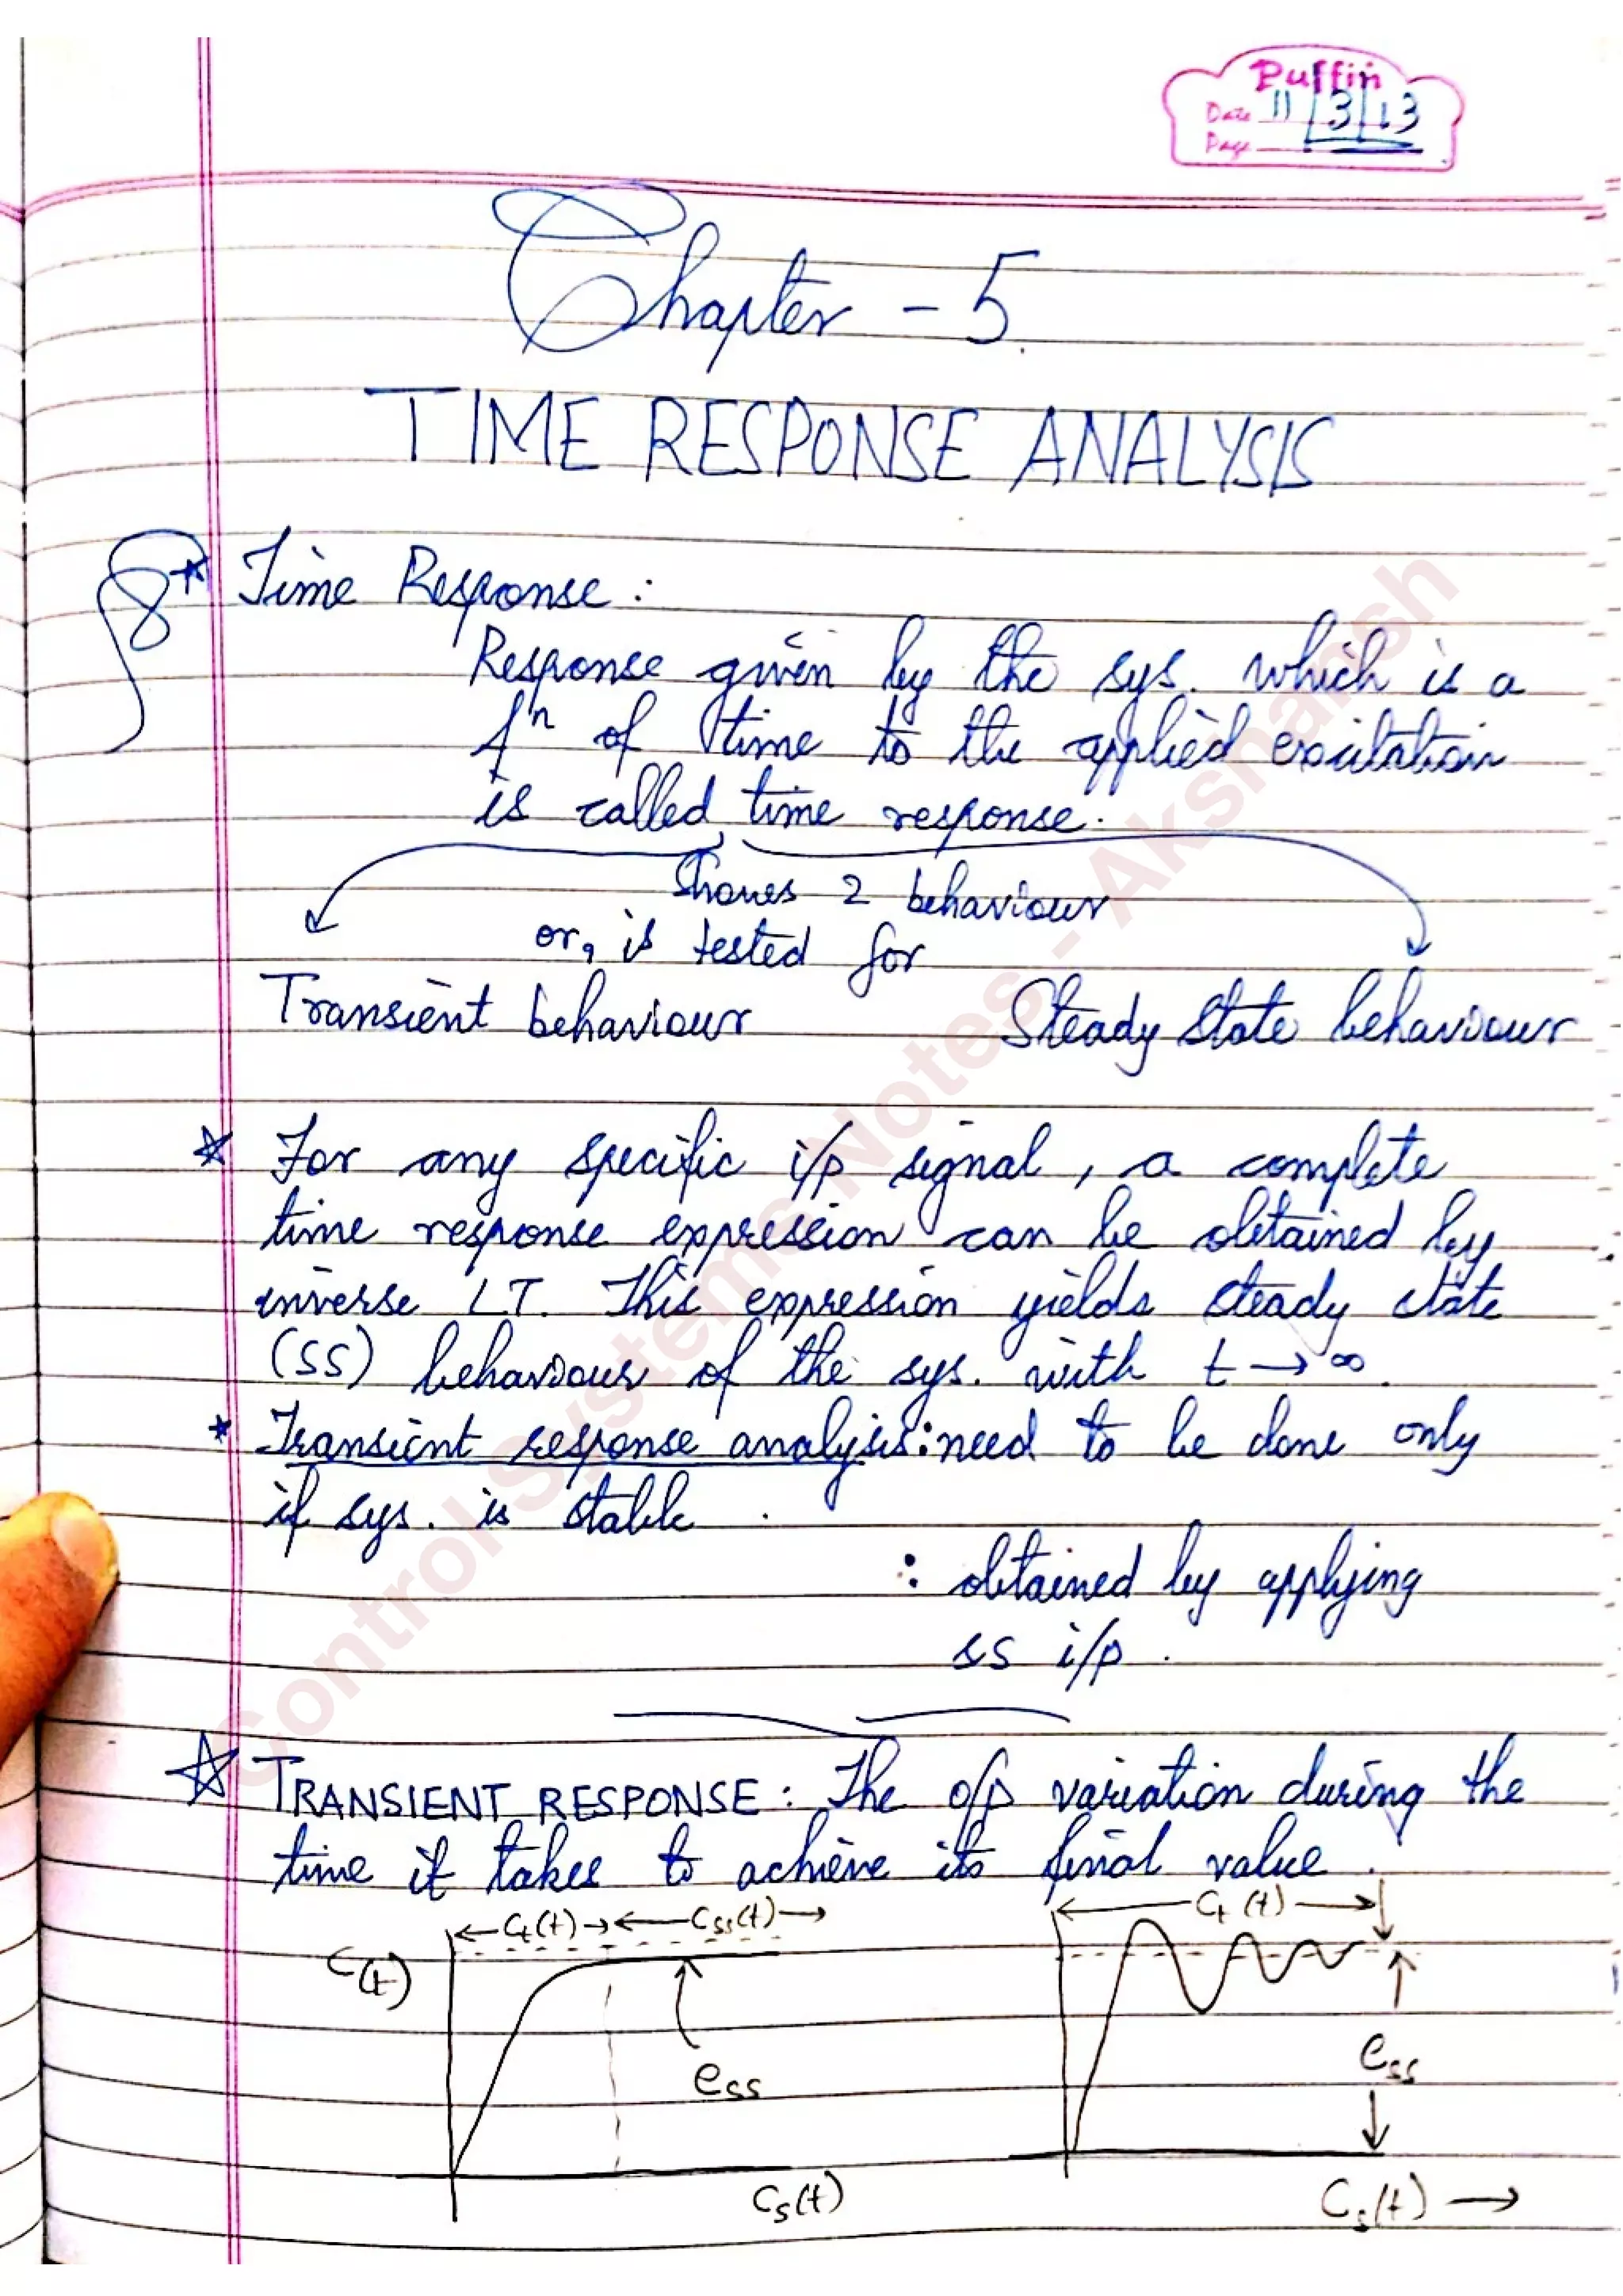 Puffin
Date 11/3/13
Page
Chapter - 5.
TIME RESPONSE ANALYSIS
* Time Response :
Response given by the sys. which is a
fⁿ of time to the applied excitation
is called time response.
Shows 2 behaviour
or, is tested for
Transient behaviour Steady State behaviour
* For any specific i/p signal, a complete
time response expression can be obtained by
inverse LT. This expression yields steady state
(SS) behaviour of the sys. with t → ∞.
* Transient response analysis: need to be done only
if sys. is stable.
: obtained by applying
ss i/p.
☆ TRANSIENT RESPONSE : The o/p variation during the
time it takes to achieve its final value.
← Ct(t) →← Css(t) →
← Ct(t) →
C(t)
ess
ess
Cs(t)
Cs(t) →
Control Systems Notes - Akshansh